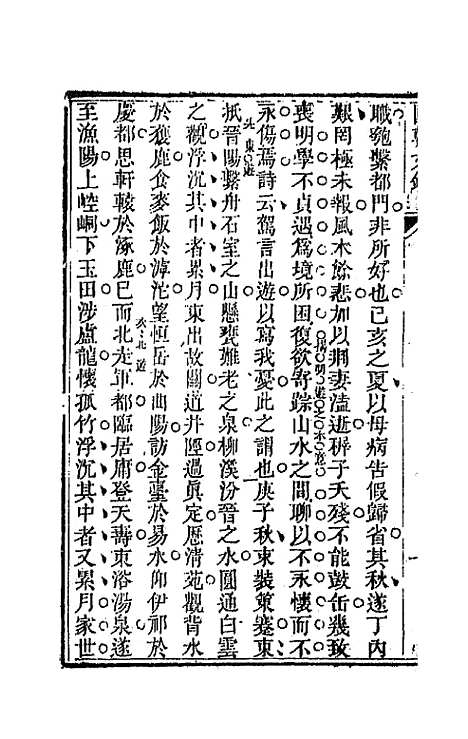 職匏繫都門非所好也已亥之夏以母病告假歸省其秋遂丁內
艱罔極未報風木餘悲加以荊妻溘逝稺子夭殘不能鼓缶幾致
喪明學不貞遇為境所困復欲寄踪山水之間聊以不永懷而不
永傷焉詩云駕言出遊以寫我憂此之謂也庚子秋束裝策蹇東
抵晉陽繫舟石室之山懸甕難老之泉柳溪汾晉之水圓通白雲
之觀浮沉其中者累月東出故關道井陘過眞定歷清苑觀背水
於獲鹿食麥飯於滹沱望恒岳於曲陽訪金臺於易水仰伊祁於
慶都思軒轅於涿鹿已而北走軍都臨居庸登天壽東浴湯泉遂
至漁陽上崆峒下玉田涉盧龍懷孤竹浮沉其中者又累月家世